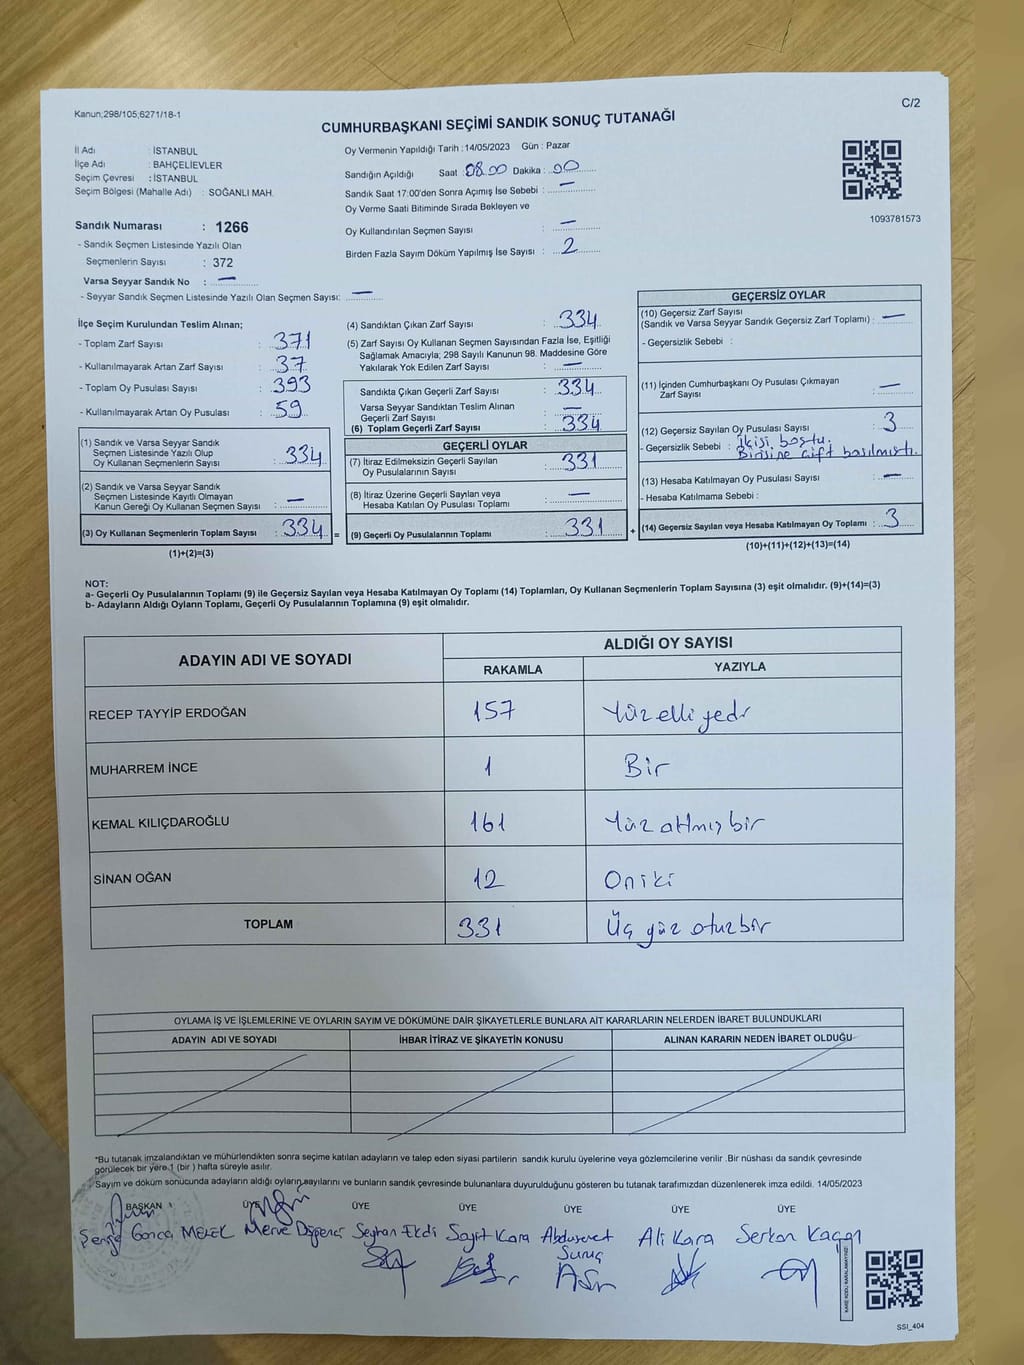 Kanun;298/105;6271/18-1
C/2
CUMHURBAŞKANI SEÇİMİ SANDIK SONUÇ TUTANAĞI
İl Adı : İSTANBUL
İlçe Adı : BAHÇELİEVLER
Seçim Çevresi : İSTANBUL
Seçim Bölgesi (Mahalle Adı) : SOĞANLI MAH.
Oy Vermenin Yapıldığı Tarih :14/05/2023 Gün : Pazar
Sandığın Açıldığı Saat : 08.00 Dakika : 00
Sandık Saat 17:00'den Sonra Açımış İse Sebebi : —
Oy Verme Saati Bitiminde Sırada Bekleyen ve
Oy Kullandırılan Seçmen Sayısı : —
Birden Fazla Sayım Döküm Yapılmış İse Sayısı : 2
1093781573
Sandık Numarası : 1266
- Sandık Seçmen Listesinde Yazılı Olan
Seçmenlerin Sayısı : 372
Varsa Seyyar Sandık No : —
- Seyyar Sandık Seçmen Listesinde Yazılı Olan Seçmen Sayısı: —
İlçe Seçim Kurulundan Teslim Alınan;
- Toplam Zarf Sayısı : 371
- Kullanılmayarak Artan Zarf Sayısı : 37
- Toplam Oy Pusulası Sayısı : 393
- Kullanılmayarak Artan Oy Pusulası : 59
(1) Sandık ve Varsa Seyyar Sandık
Seçmen Listesinde Yazılı Olup
Oy Kullanan Seçmenlerin Sayısı : 334
(2) Sandık ve Varsa Seyyar Sandık
Seçmen Listesinde Kayıtlı Olmayan
Kanun Gereği Oy Kullanan Seçmen Sayısı : —
(3) Oy Kullanan Seçmenlerin Toplam Sayısı : 334
(1)+(2)=(3)
(4) Sandıktan Çıkan Zarf Sayısı : 334
(5) Zarf Sayısı Oy Kullanan Seçmen Sayısından Fazla İse, Eşitliği
Sağlamak Amacıyla; 298 Sayılı Kanunun 98. Maddesine Göre
Yakılarak Yok Edilen Zarf Sayısı : —
Sandıkta Çıkan Geçerli Zarf Sayısı : 334
Varsa Seyyar Sandıktan Teslim Alınan
Geçerli Zarf Sayısı : —
(6) Toplam Geçerli Zarf Sayısı : 334
GEÇERLİ OYLAR
(7) İtiraz Edilmeksizin Geçerli Sayılan
Oy Pusulalarının Sayısı : 331
(8) İtiraz Üzerine Geçerli Sayılan veya
Hesaba Katılan Oy Pusulası Toplamı : —
= (9) Geçerli Oy Pusulalarının Toplamı : 331 +
GEÇERSİZ OYLAR
(10) Geçersiz Zarf Sayısı
(Sandık ve Varsa Seyyar Sandık Geçersiz Zarf Toplamı) : —
- Geçersizlik Sebebi :
(11) İçinden Cumhurbaşkanı Oy Pusulası Çıkmayan
Zarf Sayısı : —
(12) Geçersiz Sayılan Oy Pusulası Sayısı : 3
- Geçersizlik Sebebi : İkisi boştu.
Birisine çift basılmıştı.
(13) Hesaba Katılmayan Oy Pusulası Sayısı : —
- Hesaba Katılmama Sebebi :
(14) Geçersiz Sayılan veya Hesaba Katılmayan Oy Toplamı : 3
(10)+(11)+(12)+(13)=(14)
NOT:
a- Geçerli Oy Pusulalarının Toplamı (9) ile Geçersiz Sayılan veya Hesaba Katılmayan Oy Toplamı (14) Toplamları, Oy Kullanan Seçmenlerin Toplam Sayısına (3) eşit olmalıdır. (9)+(14)=(3)
b- Adayların Aldığı Oyların Toplamı, Geçerli Oy Pusulalarının Toplamına (9) eşit olmalıdır.
ADAYIN ADI VE SOYADI
ALDIĞI OY SAYISI
RAKAMLA YAZIYLA
RECEP TAYYİP ERDOĞAN 157 Yüz elli yedi
MUHARREM İNCE 1 Bir
KEMAL KILIÇDAROĞLU 161 Yüz altmış bir
SİNAN OĞAN 12 On iki
TOPLAM 331 Üç yüz otuz bir
OYLAMA İŞ VE İŞLEMLERİNE VE OYLARIN SAYIM VE DÖKÜMÜNE DAİR ŞİKAYETLERLE BUNLARA AİT KARARLARIN NELERDEN İBARET BULUNDUKLARI
ADAYIN ADI VE SOYADI İHBAR İTİRAZ VE ŞİKAYETİN KONUSU ALINAN KARARIN NEDEN İBARET OLDUĞU
*Bu tutanak imzalandıktan ve mühürlendikten sonra seçime katılan adayların ve talep eden siyasi partilerin sandık kurulu üyelerine veya gözlemcilerine verilir .Bir nüshası da sandık çevresinde
görülecek bir yere 1 (bir ) hafta süreyle asılır.
Sayım ve döküm sonucunda adayların aldığı oyların sayılarını ve bunların sandık çevresinde bulunanlara duyurulduğunu gösteren bu tutanak tarafımızdan düzenlenerek imza edildi. 14/05/2023
BAŞKAN ÜYE ÜYE ÜYE ÜYE ÜYE ÜYE
Gonca MELEK Merve Seyhan Ekdi Sayit Kara Ali Kara Serkan Kaçan
KARE KODU KARALAMAYINIZ!
SSI_404